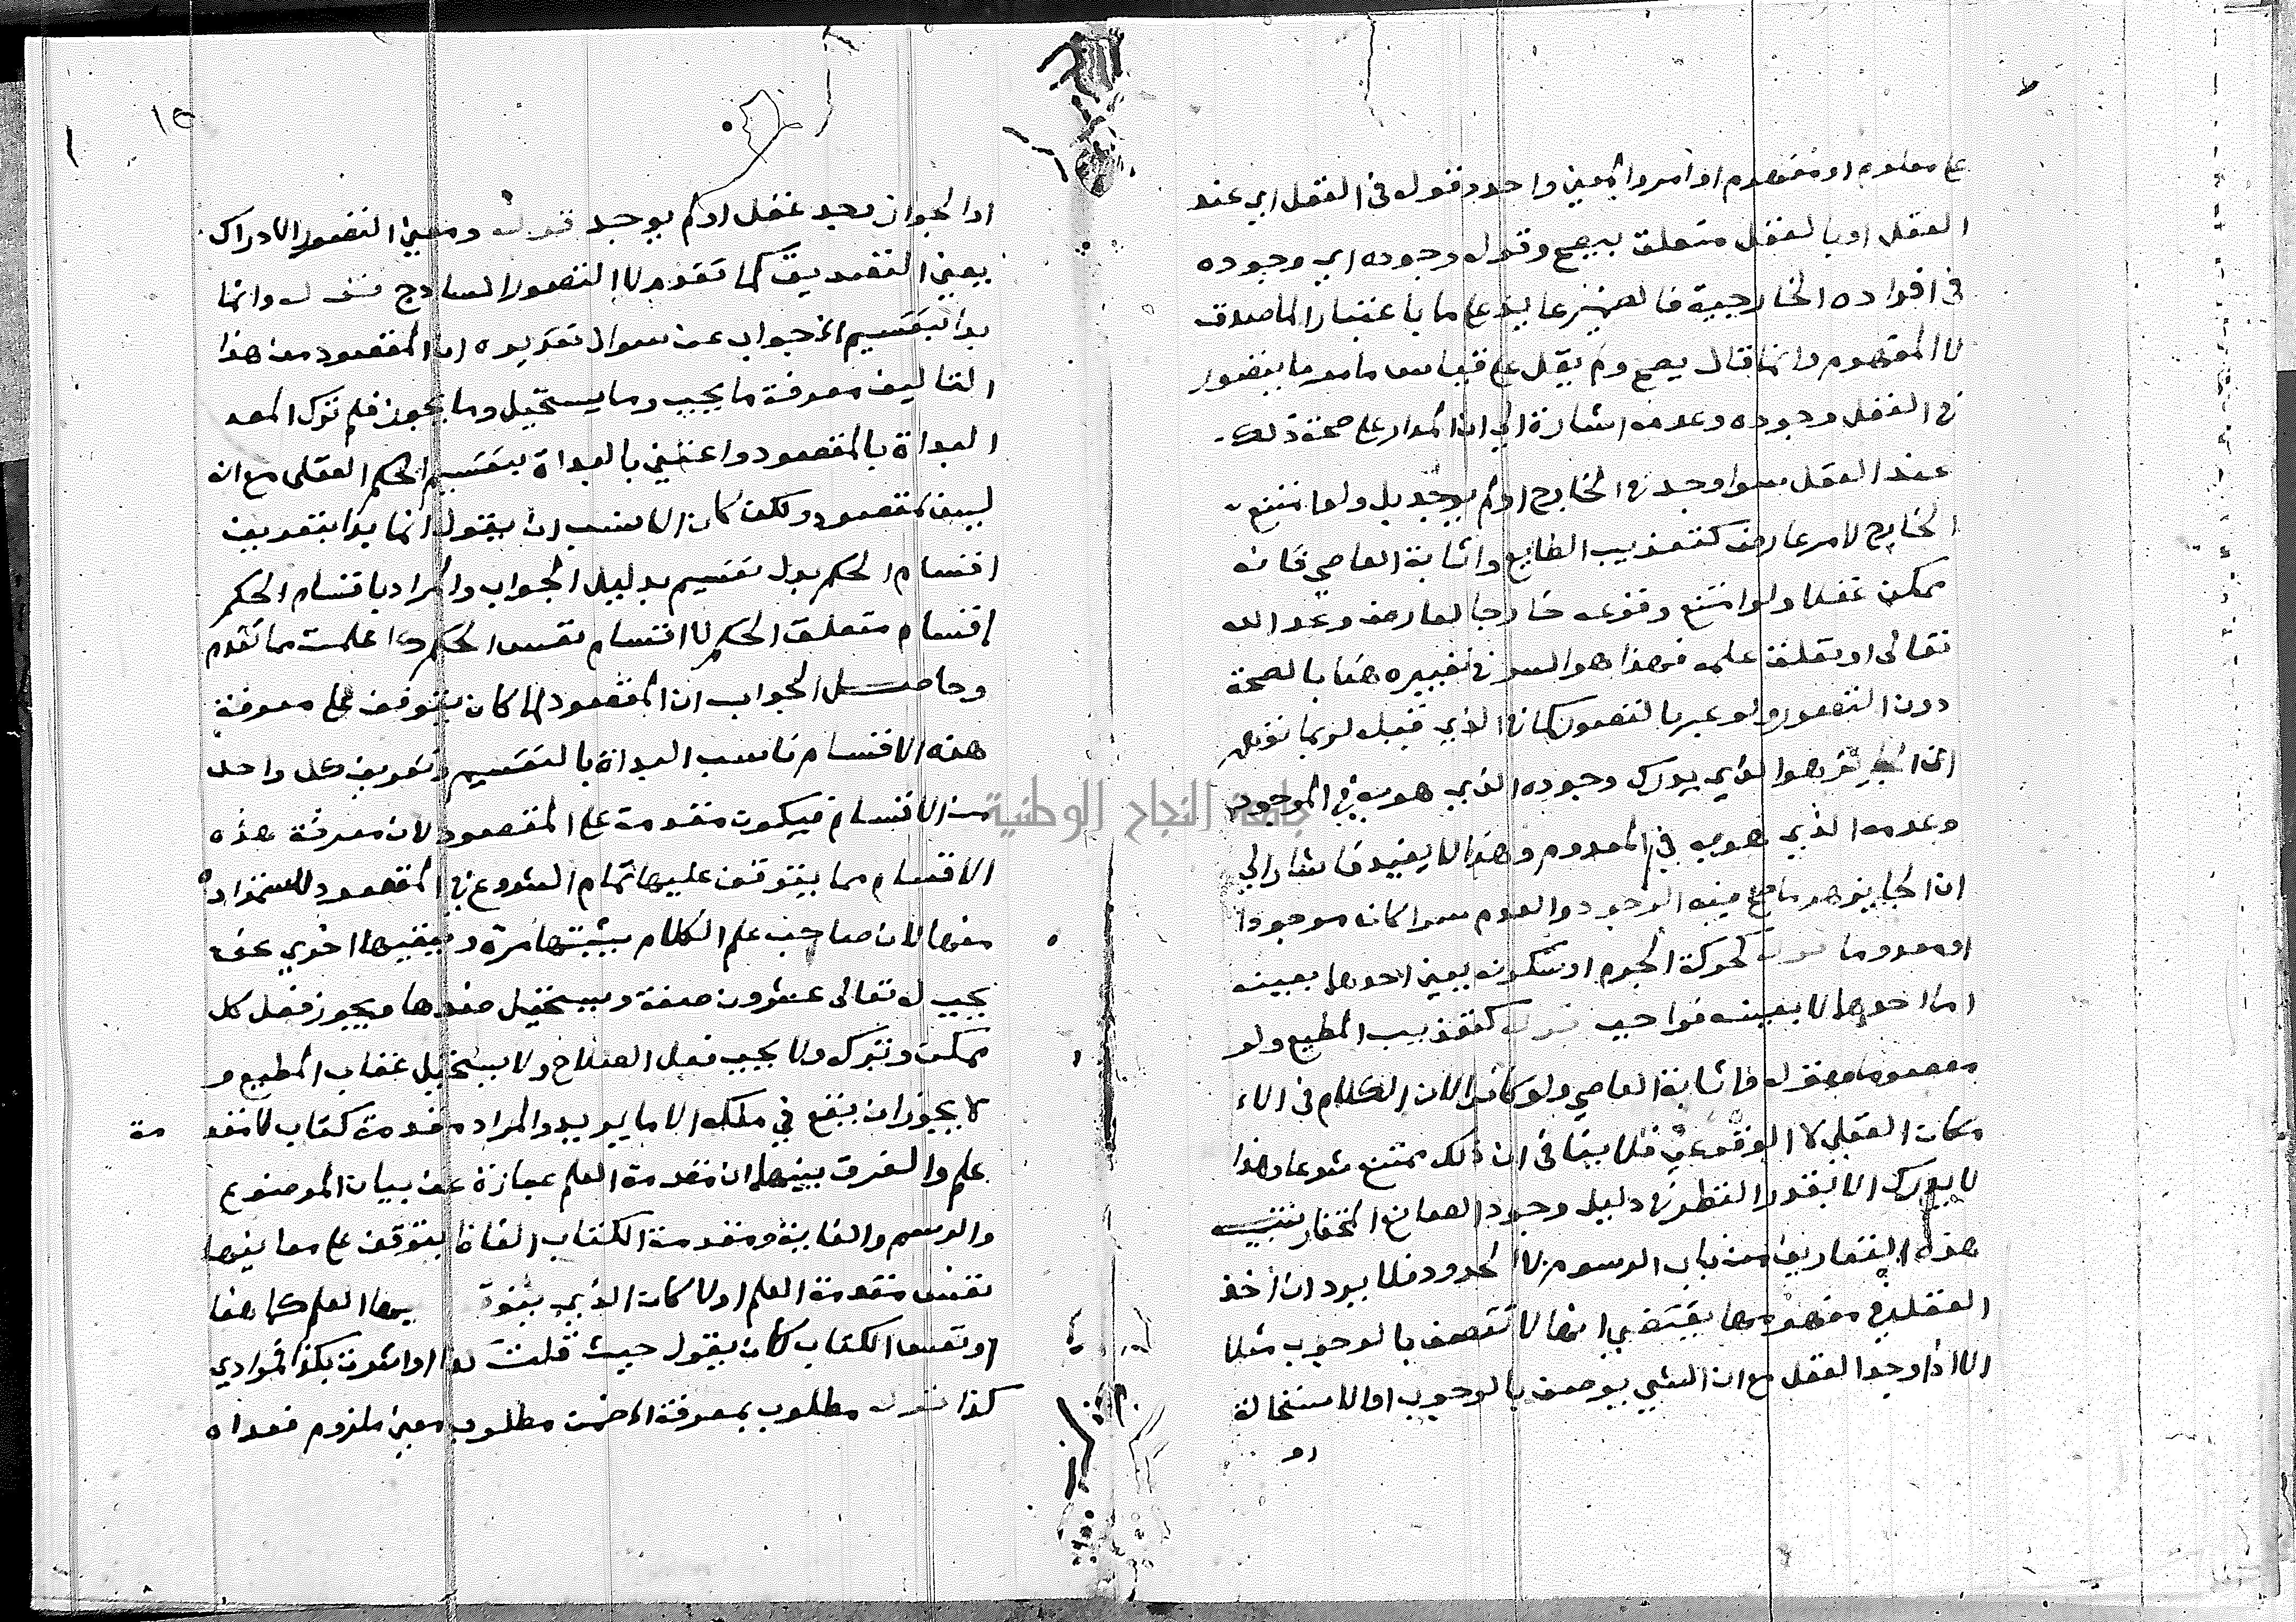 على معلوم او مفهوم او امر والمعنى واحد وقوله في العقل اي عند
العقل او بالعقل متعلق بيصح وقوله وجوده اي وجوده
في افراده الخارجية فالضمير عايد على ما باعتبار الماصدق
لا المفهوم وانما قال يصح ولم يقل على قياس ما مر ما يتصور
في العقل وجوده وعدمه اشارة الى ان المدار على صحة ذلك
عند العقل سوا وجد في الخارج او لم يوجد بل ولو امتنع
الخارج لامر عارض كتعذيب الطايع واثابة العاصي فانه
ممكن عقلا ولو امتنع وقوعه خارجا لعارض وعد الله
تعالى او تعلق علمه فهذا هو السر في تعبيره هنا بالصحة
دون التصور ولو عبر بالتصور كما في الذي قبله لربما توهم
ان الجايز هو الذي يدرك وجوده الذي هو به في الموجود
وعدمه الذي هو به في المعدوم وهذا لا يفيد فاشار الى
ان الجايز هو ما صح فيه الوجود والعدم سوا كان موجودا
او معدوما قوله كحركة الجرم او سكونه يعني احدهما بعينه
اما احدهما لا بعينه فواجب قوله كتعذيب المطيع ولو
معصوما وقوله واثابة العاصي ولو كافرا لان الكلام في الا
مكان العقلي لا الوقوعي فلا ينافي ان ذلك ممتنع شرعا وهذا
لا يدرك الا بعد النظر في دليل وجود الصانع المختار تنبيه
هذه التعاريف من باب الرسوم لا الحدود فلا يرد ان اخذ
العقل في مفهومها يقتضي انها لا تتصف بالوجوب مثلا
الا اذا وجد العقل مع ان الشي يوصف بالوجوب او الاستحالة
او
١٥
او الجواز وجد عقل او لم يوجد قوله ومعنى التصور الادراك
يعني التصديق كما تقدم لا التصور الساذج قوله وانما
بدا بتقسيم الخ جواب عن سوال تقديره ان المقصود من هذا
التاليف معرفة ما يجب وما يستحيل وما يجوز فلم ترك المص
البداة بالمقصود واعتنى بالبداة بتقسيم الحكم العقلي مع انه
ليس بمقصود ولكن كان الانسب ان يقول انما بدا بتعريف
اقسام الحكم بدل تقسيم بدليل الجواب والمراد باقسام الحكم
اقسام متعلق الحكم لا اقسام نفس الحكم كما علمت مما تقدم
وحاصل الجواب ان المقصود لما كان يتوقف على معرفة
هذه الاقسام ناسب البداة بالتقسيم وتعريف كل واحد
من الاقسام فيكون مقدمة على المقصود لان معرفة هذه
الاقسام مما يتوقف عليها تمام الشروع في المقصود لاستمداده
منها لان صاحب علم الكلام يثبتها مرة وينفيها اخرى نحو
يجب له تعالى عشرون صفة ويستحيل ضدها ويجوز فعل كل
ممكن وتركه ولا يجب فعل الصلاح ولا يستحيل عقاب المطيع و
لا يجوز ان يقع في ملكه الا ما يريد والمراد مقدمة كتاب لا مقد مة
علم والفرق بينهما ان مقدمة العلم عبارة عن بيان الموضوع
والرسم والغاية ومقدمة الكتاب الفاظ يتوقف على معانيها
نفس مقدمة العلم اولا كان الذي يتوقف عليها العلم كما هنا
او نفس الكتاب كان يقول حيث قلت كذا او اشرت بكذا فمرادي
كذا قوله مطلوب بمعرفة الخ ضمن مطلوب معنى ملزوم فعداه
جامعة النجاح الوطنية